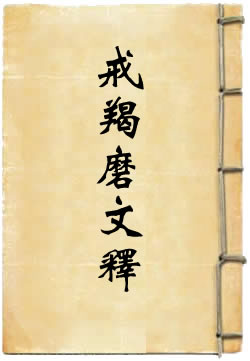 戒羯磨文釋